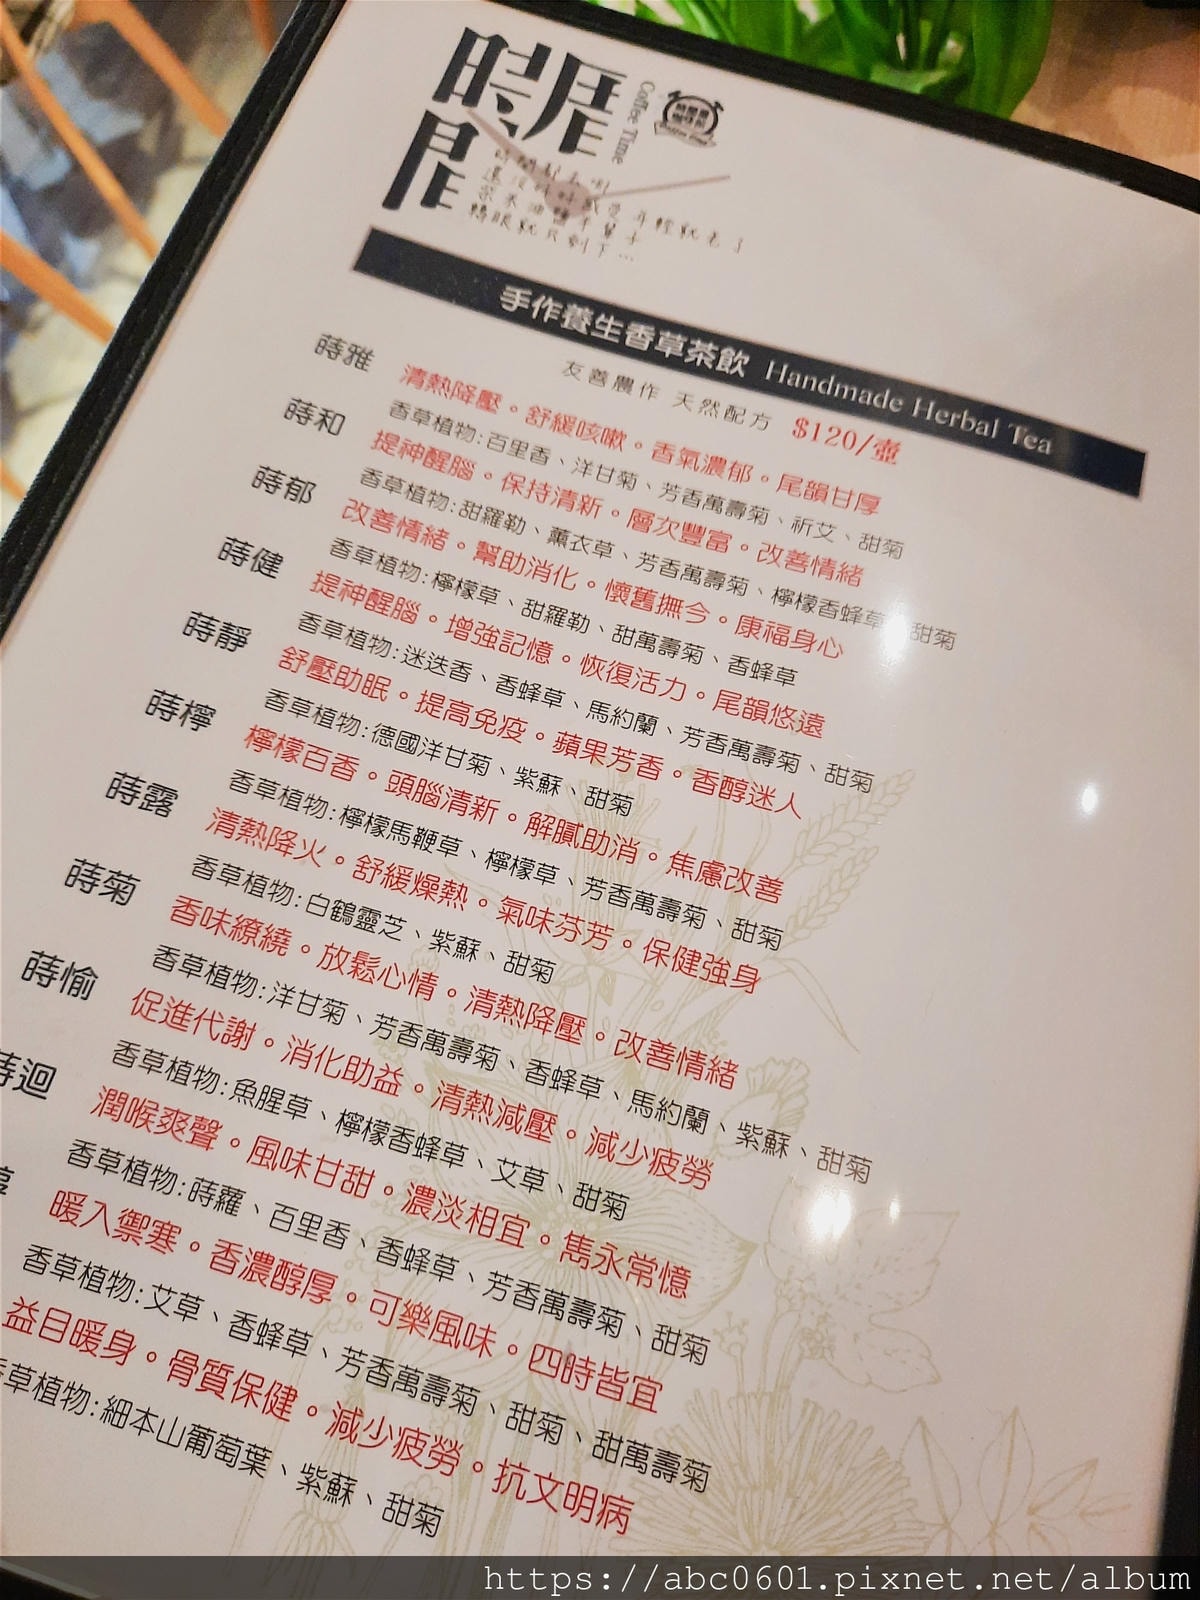 時居
Coffee Time
還沒好好感受年輕就老了
柴米油鹽半輩子
轉眼就只剩下…
手作養生香草茶飲 Handmade Herbal Tea
友善農作 天然配方 $120/壺
蒔雅 清熱降壓。舒緩咳嗽。香氣濃郁。尾韻甘厚
香草植物:百里香、洋甘菊、芳香萬壽菊、祈艾、甜菊
蒔和 提神醒腦。保持清新。層次豐富。改善情緒
香草植物:甜羅勒、薰衣草、芳香萬壽菊、檸檬香蜂草、甜菊
蒔郁 改善情緒。幫助消化。懷舊撫今。康福身心
香草植物:檸檬草、甜羅勒、甜萬壽菊、香蜂草
蒔健 提神醒腦。增強記憶。恢復活力。尾韻悠遠
香草植物:迷迭香、香蜂草、馬約蘭、芳香萬壽菊、甜菊
蒔靜 舒壓助眠。提高免疫。蘋果芳香。香醇迷人
香草植物:德國洋甘菊、紫蘇、甜菊
蒔檸 檸檬百香。頭腦清新。解膩助消。焦慮改善
香草植物:檸檬馬鞭草、檸檬草、芳香萬壽菊、甜菊
蒔露 清熱降火。舒緩燥熱。氣味芬芳。保健強身
香草植物:白鶴靈芝、紫蘇、甜菊
蒔菊 香味繚繞。放鬆心情。清熱降壓。改善情緒
香草植物:洋甘菊、芳香萬壽菊、香蜂草、馬約蘭、紫蘇、甜菊
蒔愉 促進代謝。消化助益。清熱減壓。減少疲勞
香草植物:魚腥草、檸檬香蜂草、艾草、甜菊
蒔迴 潤喉爽聲。風味甘甜。濃淡相宜。雋永常憶
香草植物:蒔蘿、百里香、香蜂草、芳香萬壽菊、甜菊
暖入禦寒。香濃醇厚。可樂風味。四時皆宜
香草植物:艾草、香蜂草、芳香萬壽菊、甜菊、甜萬壽菊
益目暖身。骨質保健。減少疲勞。抗文明病
香草植物:細本山葡萄葉、紫蘇、甜菊
https://abc0601.pixnet.net/album